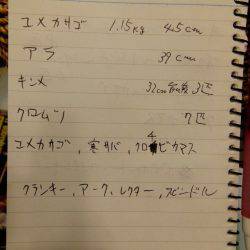 ユメカサゴ 1.15kg 45cm
アラ 39cm
キンメ 32cm 3匹
クロムツ 7匹
ユメカサゴ、寒サバ、クロシビカマス
クランキー、アーク、レクター、スピンドル